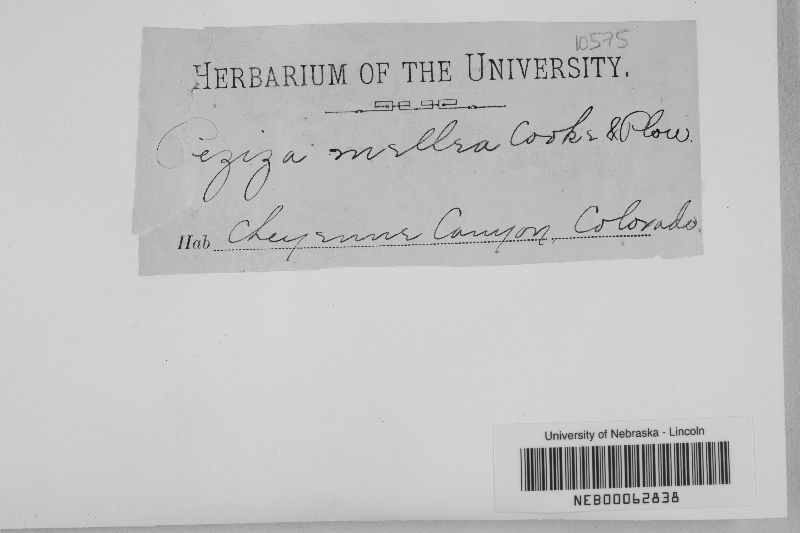 10575
HERBARIUM OF THE UNIVERSITY.
Peziza mellea Cooke & Plow.
Hab Cheyenne Canyon, Colorado.
University of Nebraska - Lincoln
NEB00062838